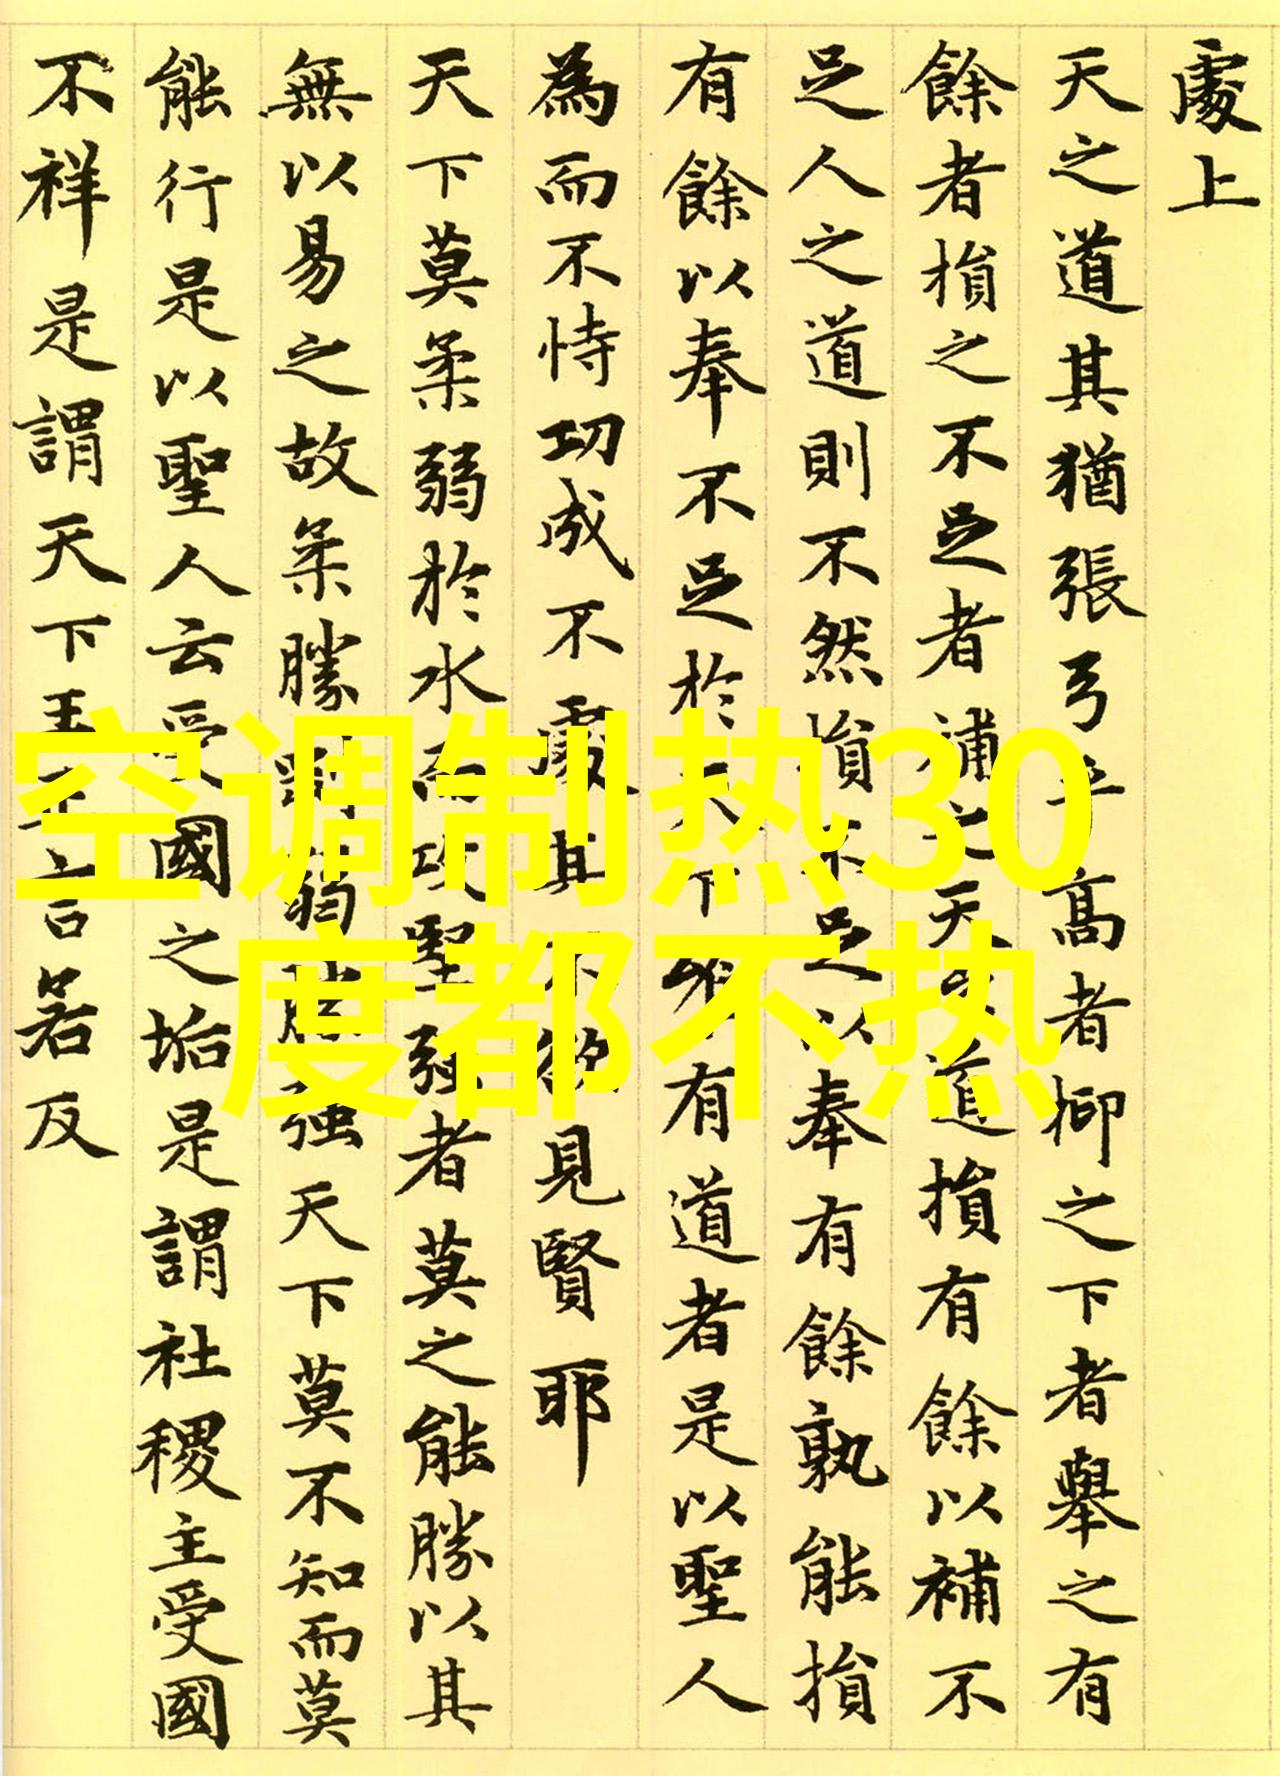 處上
天之道其猶張弓乎高者抑之下者舉之有
餘者損之不足者補之天之道損有餘以補不
足人之道則不然損不足以奉有餘孰能損
有餘以奉不足於天下唯有道者是以聖人
為而不恃功成不處其不欲見賢耶
天下莫柔弱於水而攻堅強者莫之能勝以其
無以易之故柔勝剛弱勝強天下莫不知而莫
能行是以聖人云受國之垢是謂社稷主受國
不祥是謂天下王正言若反
空调制热30
度都不热